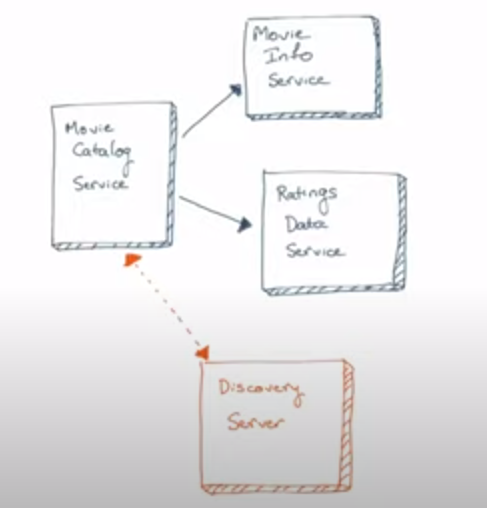 Movie
Catalog
Service
Movie
Info
Service
Ratings
Data
Service
Discovery
Server